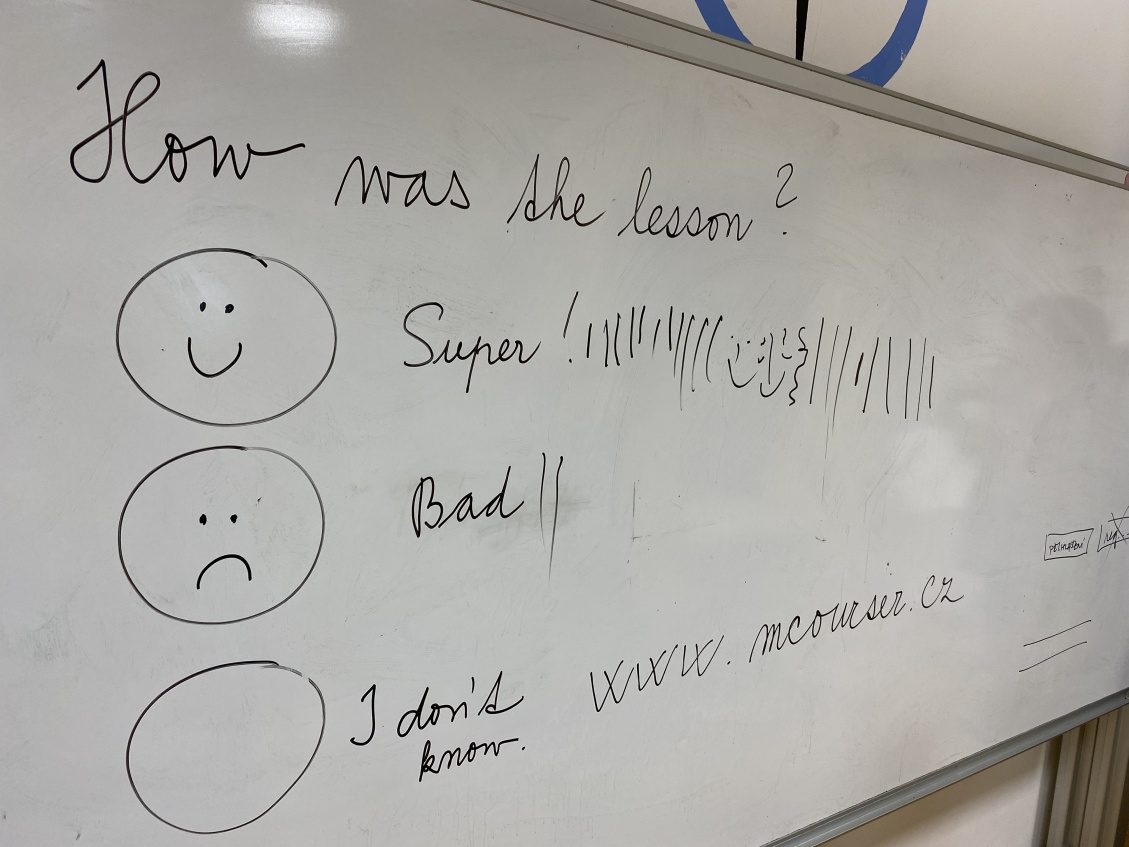 How was the lesson?
Super!
Bad
I don't
know.
www.mcoursir.cz